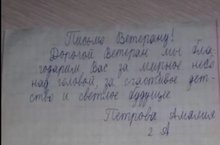 Письмо Ветерану!
Дорогой Ветеран мы бла
годарим Вас за мирное небо
над головой, за счастливое дет-
ство и светлое будущее
Петрова Амалия
2 А